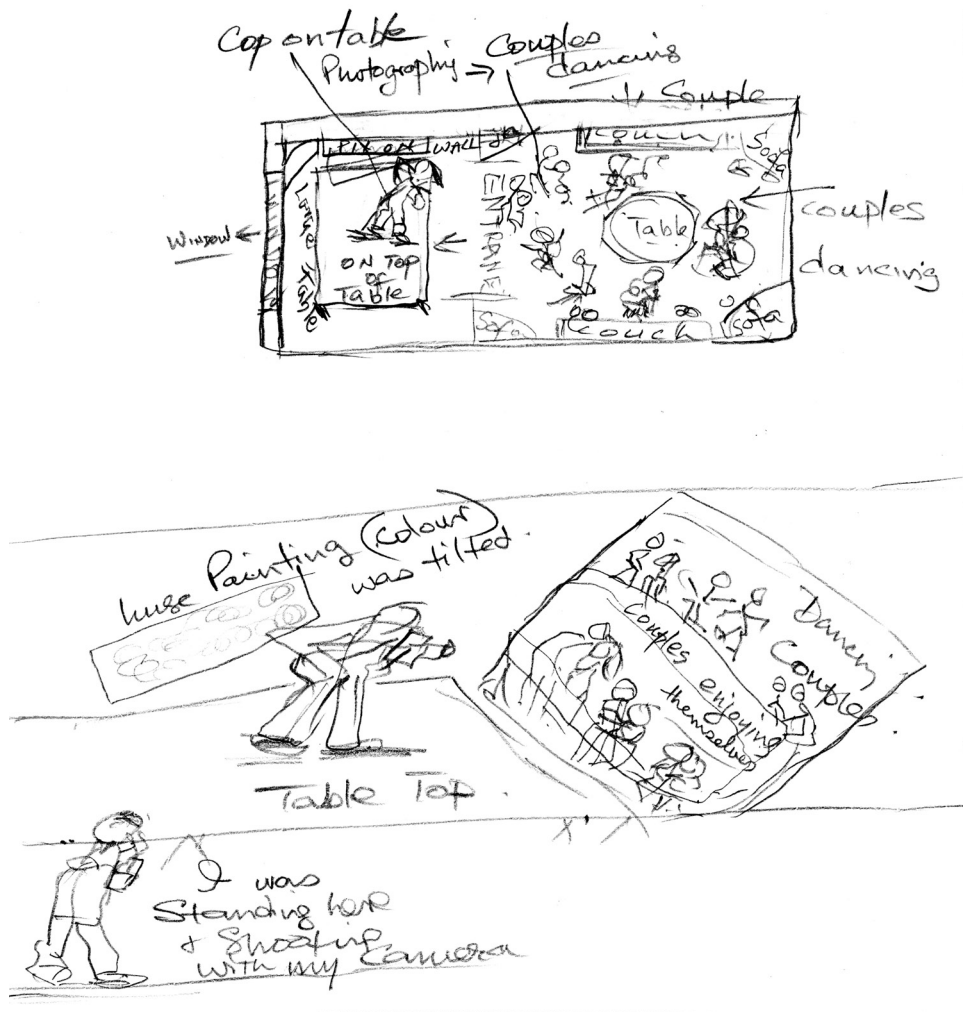 Cop on table
Photography → Couples
dancing
↓ Couple
PIX ON WALL
Couch
Sofa
ENTRANE
Table
couples
dancing
WINDOW
WINDOW
ON TOP
OF
Table
Sofa
Couch
Sofa
huge Painting (colour)
was tilted.
Dancing
Couples
Couples enjoying
themselves
Table Top.
I was
Standing here
& Shooting
with my Camera